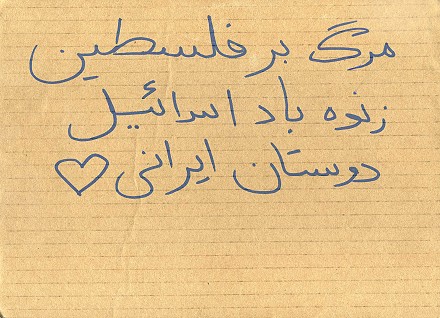 مرگ بر فلسطین
زنده باد اسرائیل
دوستان ایرانی♡